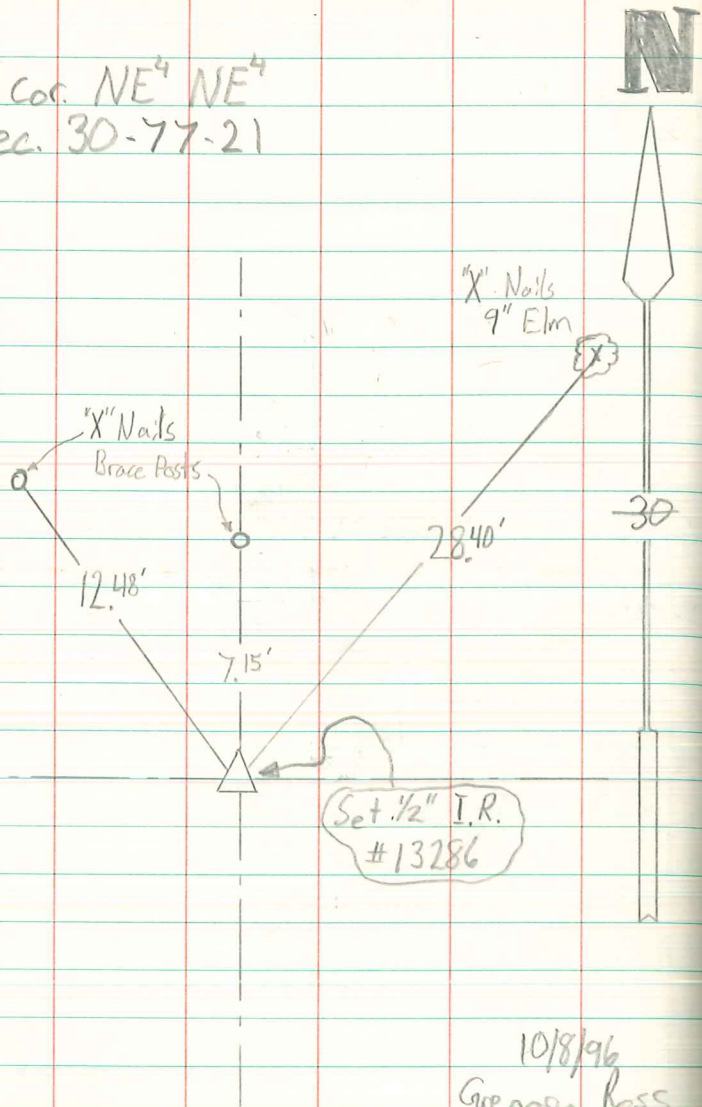 N
cor. NE⁴ NE⁴
ec. 30-77-21
"X" Nails
9" Elm
x
"X" Nails
Brace Posts
30
28.40'
12.48'
7.15'
Set 1/2" I.R.
#13286
10/8/96
Ross